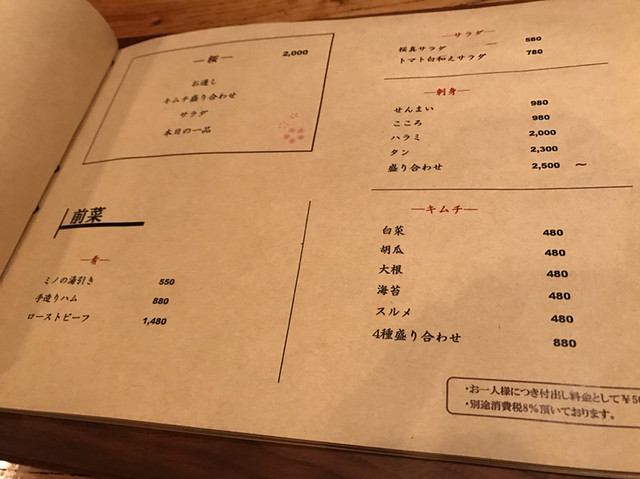 ―桜― 2,000
お通し
キムチ盛り合わせ
サラダ
本日の一品
前菜
―肴―
ミノの湯引き 550
手造りハム 880
ローストビーフ 1,480
―サラダ―
桜真サラダ 580
トマト白和えサラダ 780
―刺身―
せんまい 980
こころ 980
ハラミ 2,000
タン 2,300
盛り合わせ 2,500 〜
―キムチ―
白菜 480
胡瓜 480
大根 480
海苔 480
スルメ 480
4種盛り合わせ 880
・お一人様につき付出し料金として¥50
・別途消費税8%頂いております。